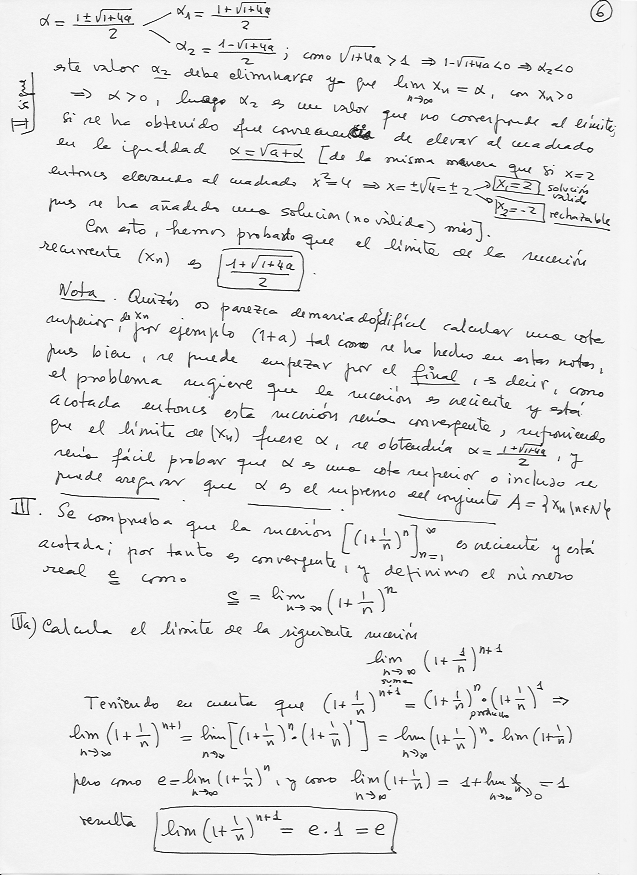 6
α = (1 ± √(1+4a))/2   α₁ = (1 + √(1+4a))/2
α₂ = (1 − √(1+4a))/2 ; como √(1+4a) > 1 ⇒ 1−√(1+4a) < 0 ⇒ α₂ < 0
II sigue
este valor α₂ debe eliminarse ya que lim xₙ = α, con xₙ > 0
n→∞
⇒ α > 0, luego α₂ es un valor que no corresponde al límite;
si se ha obtenido fue consecuencia de elevar al cuadrado
en la igualdad α = √(a+α) [de la misma manera que si x = 2
entonces elevando al cuadrado x² = 4 ⇒ x = ±√4 = ±2 x₁ = 2 solución válida
x₂ = −2 rechazable
pues se ha añadido una solución (no válida) más].
Con esto, hemos probado que el límite de la sucesión
recurrente (xₙ) es (1 + √(1+4a))/2 .
Nota. Quizás os parezca demasiado difícil calcular una cota
superior, de xₙ por ejemplo (1+a) tal como se ha hecho en estas notas,
pues bien, se puede empezar por el final, es decir, como
el problema sugiere que la sucesión es creciente y está
acotada entonces esta sucesión sería convergente, suponiendo
que el límite de (xₙ) fuese α, se obtendría α = (1+√(1+4a))/2, y
sería fácil probar que α es una cota superior o incluso se
puede asegurar que α es el supremo del conjunto A = {xₙ \ n∈N}
III. Se comprueba que la sucesión [(1 + 1/n)ⁿ]∞ₙ₌₁ es creciente y está
acotada; por tanto es convergente, y definimos el número
real e como
e = lim (1 + 1/n)ⁿ
n→∞
IIIa) Calcula el límite de la siguiente sucesión
lim (1 + 1/n)ⁿ⁺¹
n→∞
suma
Teniendo en cuenta que (1 + 1/n)ⁿ⁺¹ = (1 + 1/n)ⁿ · (1 + 1/n)¹ ⇒
producto
lim (1 + 1/n)ⁿ⁺¹ = lim [(1 + 1/n)ⁿ · (1 + 1/n)¹] = lim (1 + 1/n)ⁿ · lim (1 + 1/n)
n→∞ n→∞ n→∞
pero como e = lim (1 + 1/n)ⁿ, y como lim (1 + 1/n) = 1 + lim 1/n = 1
n→∞ n→∞ n→∞ 0
resulta lim (1 + 1/n)ⁿ⁺¹ = e · 1 = e
n→∞